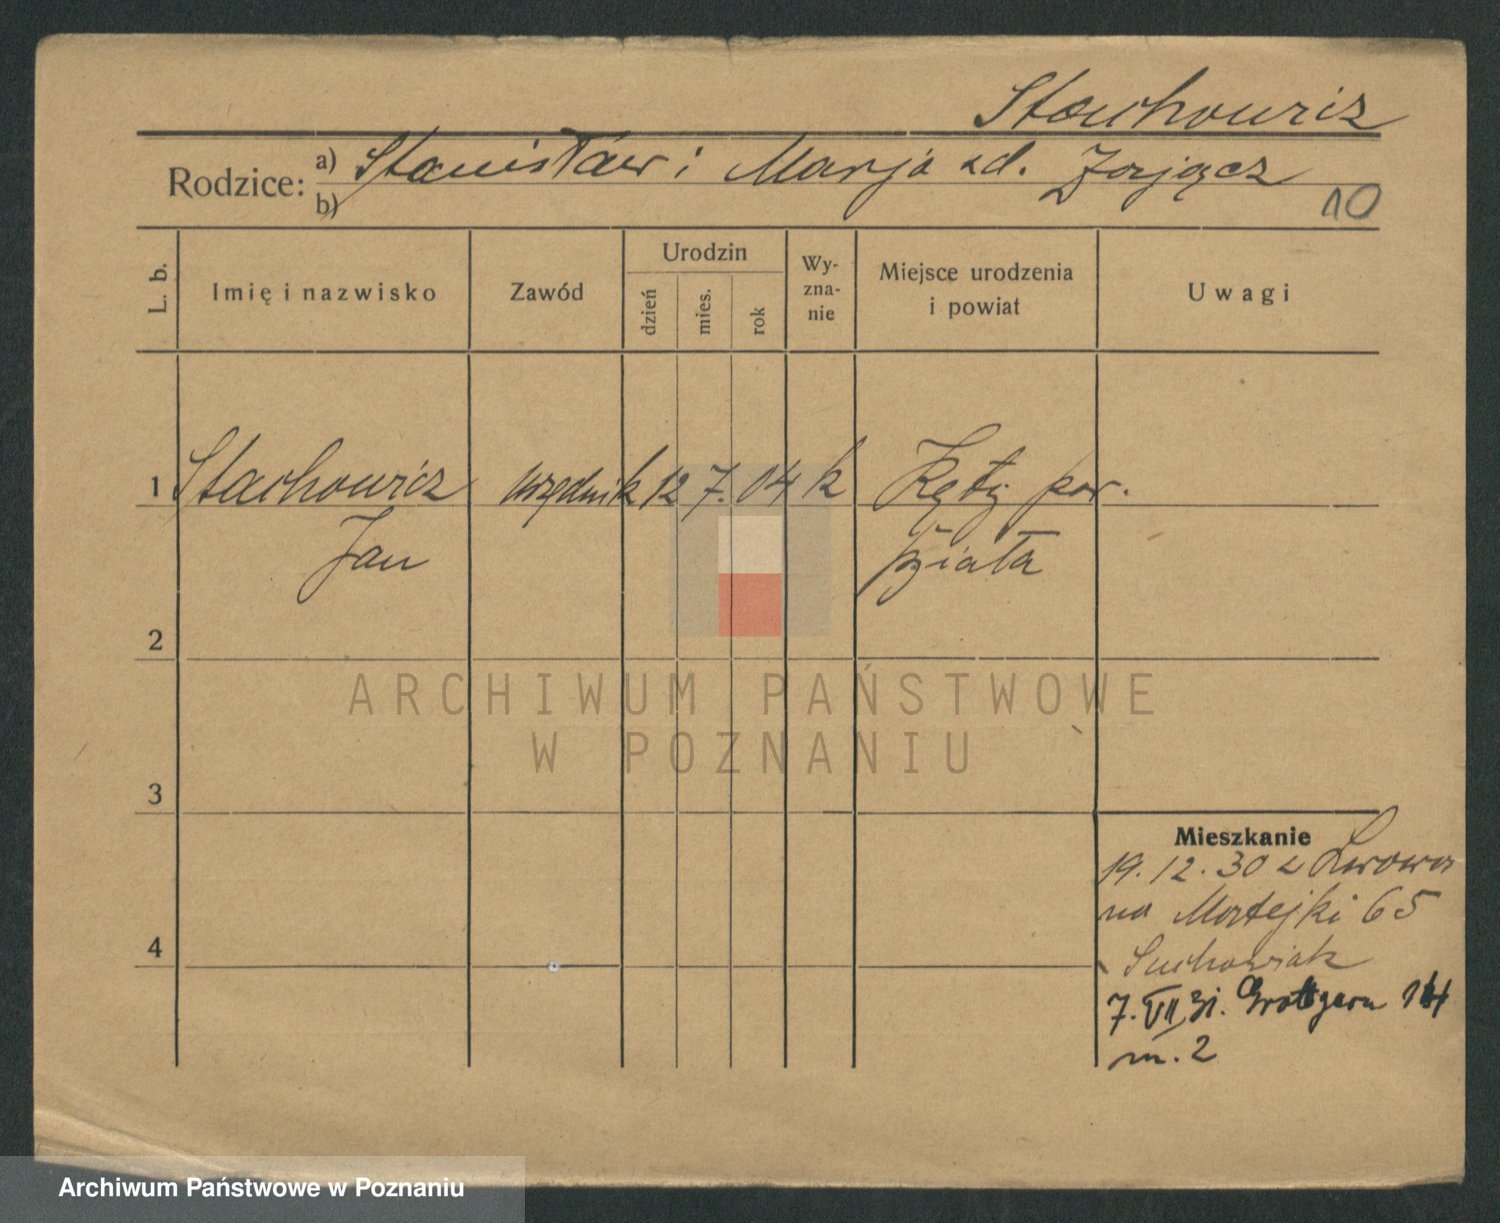 Stachowicz
Rodzice: a) Stanisław i Marja zd. Zając
b)
10
L. b.
Imię i nazwisko
Zawód
Urodzin
dzień
mies.
rok
Wy-
zna-
nie
Miejsce urodzenia
i powiat
Uwagi
1 Stachowicz urzędnik 12 7. 04 k Kęty pow.
Jan Biała
2
ARCHIWUM PAŃSTWOWE
W POZNANIU
3
Mieszkanie
19.12.30 z Lwowa
na Matejki 65
Suchowiak
4
7.VII 31. Grottgera 14
m. 2
Archiwum Państwowe w Poznaniu